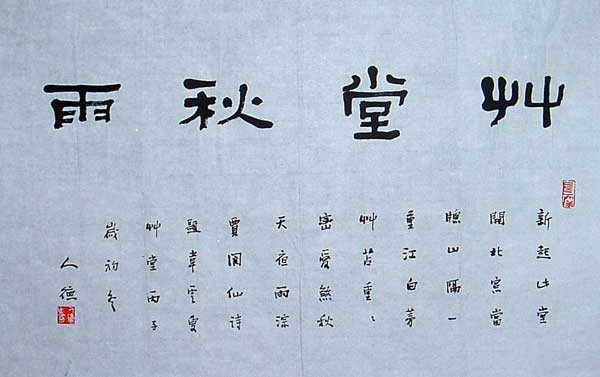 艸堂秋雨
新起此堂
開北窓當
牕山隔一
重江白茅
艸苫重〻
密愛煞秋
天夜雨淙
賈閬仙詩
題韋雲叟
艸堂丙子
歲初冬
人德